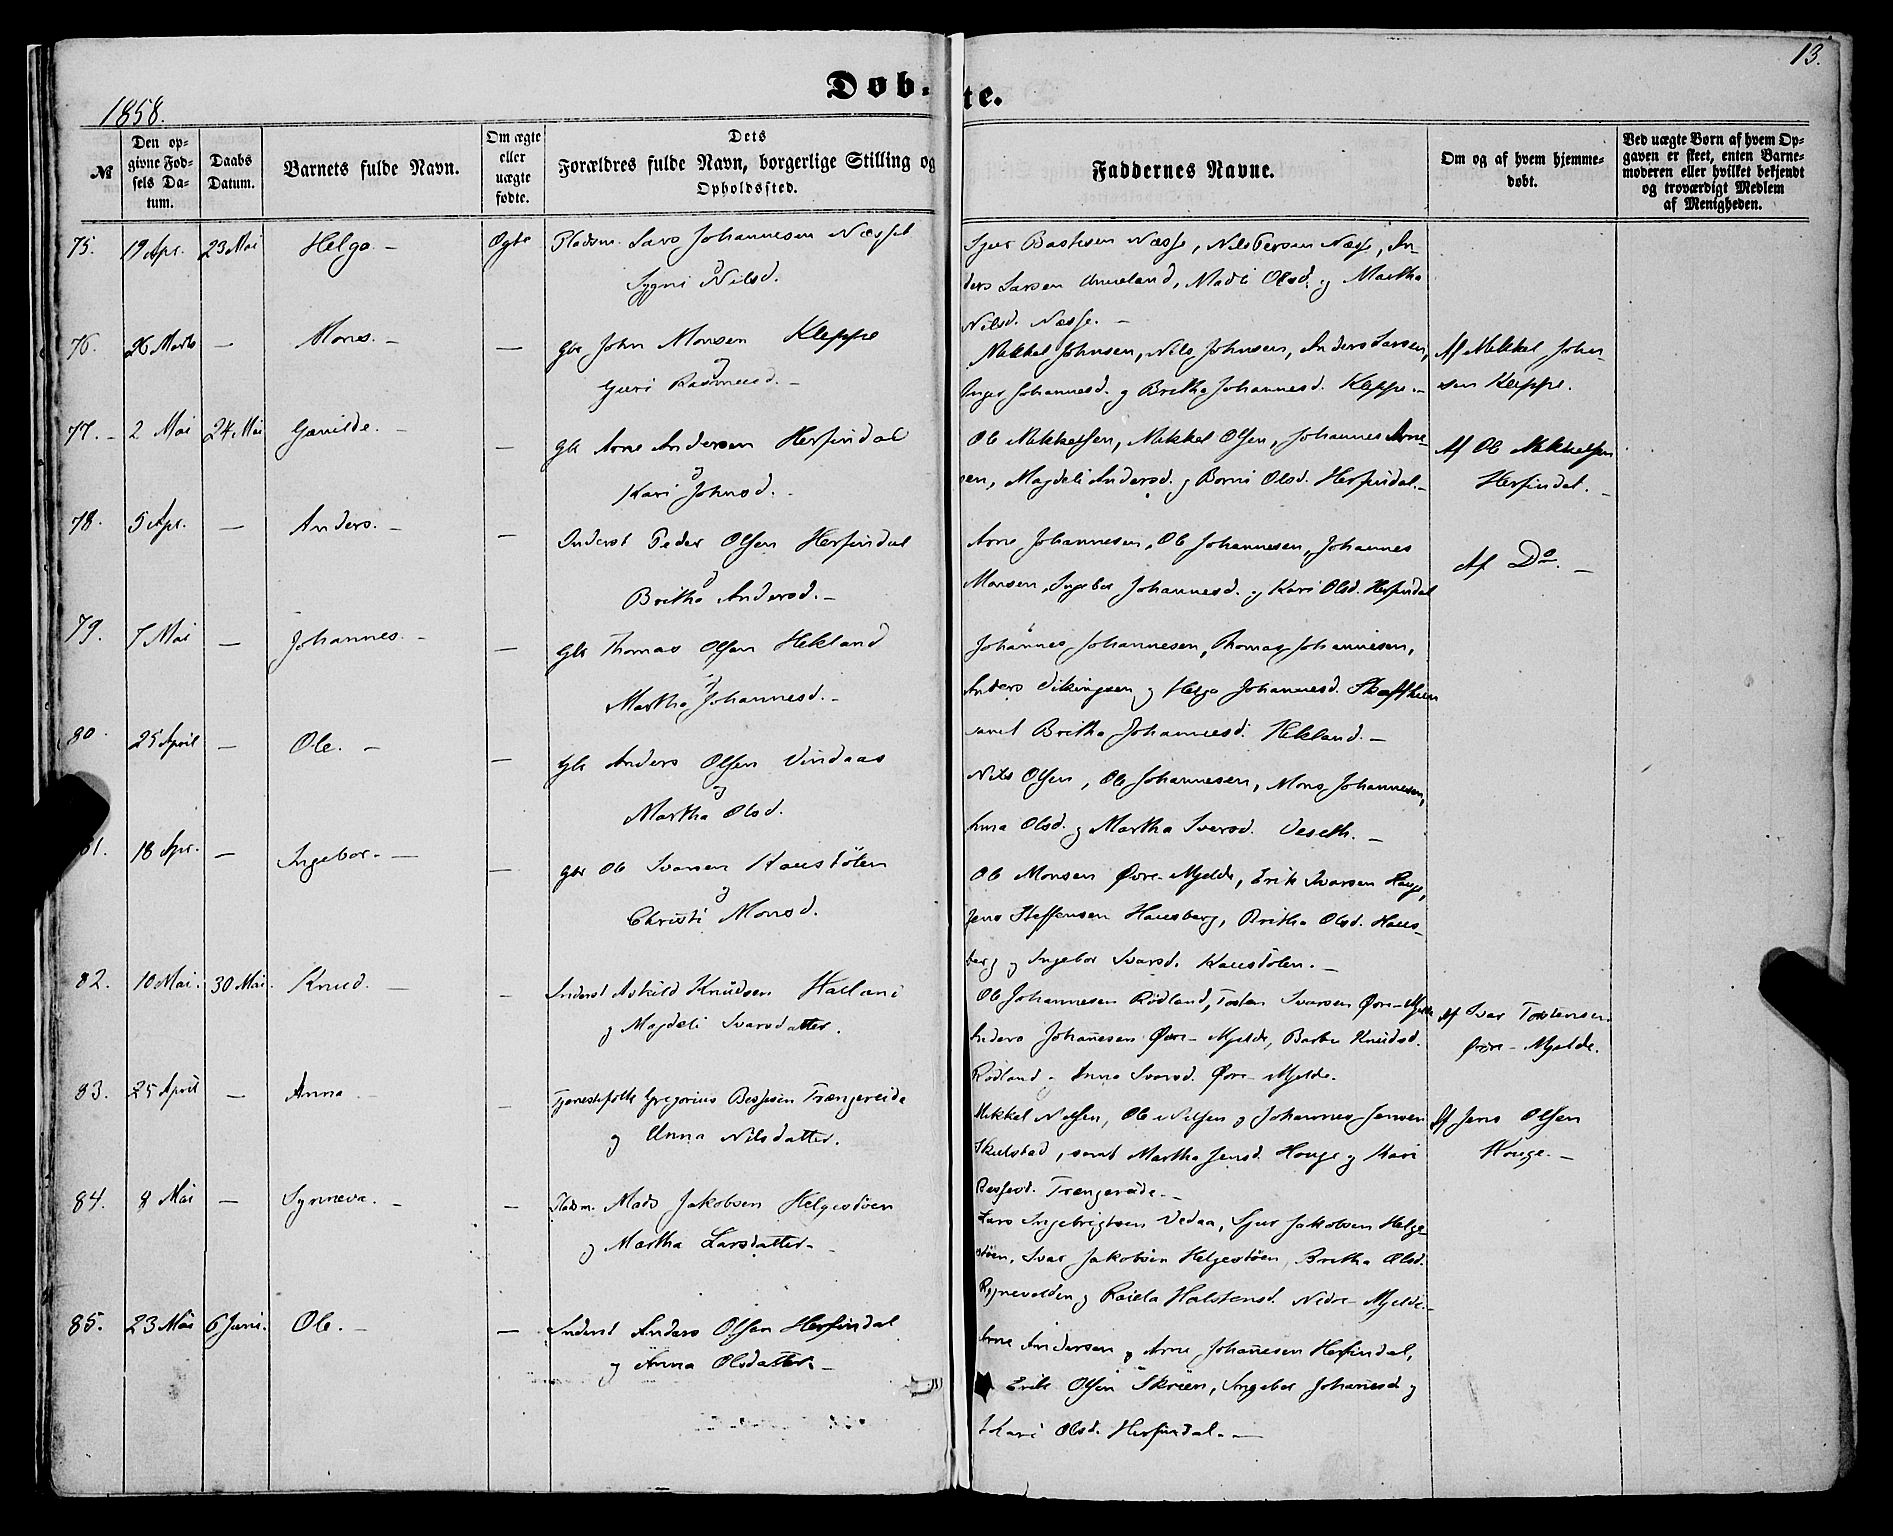 13.
1858.
Døb-
te.
№
Den op-
givne Fød-
sels Da-
tum.
Daabs
Datum.
Barnets fulde Navn.
Om ægte
eller
uægte
fødte.
Dets
Forældres fulde Navn, borgerlige Stilling og
Opholdssted.
Faddernes Navne.
Om og af hvem hjemme-
døbt.
Ved uægte Børn af hvem Op-
gaven er skeet, enten Barne-
moderen eller hvilket bekjendt
og troværdigt Medlem
af Menigheden.
75. 19 Apr. 23 Mai Helga - Ægte Pladsm. Lars Johannesen Næsset
og
Sygni Nilsd.
Sjur Næsse, Nils Persen Næsse, An-
ders Larsen, Olsd. og Martha
Nilsd. Næsse. -
76. 26 Marts - Mons. - - Gbr John Monsen Kleppe
og
Guri Rasmusd. -
Mikkel Johnsen, Nils Johnsen, Anders Larsen,
Inger Johannesd. og Britha Johannesd. Kleppe. -
Af Mikkel John-
sen Kleppe.
77. - 2 Mai 24 Mai Gunilde. - - Gbr Arne Andersen Herfindal
og
Kari Johnsd. -
Ole Mikkelsen, Mikkel Olsen, Johannes Arne-
sen, Magdeli Andersd. og Olsd. Herfindal. -
Af Ole Mikkelsen
Herfindal. -
78. 5 Apr. - Anders. - - Inderst Peder Olsen Herfindal
og
Britha Andersd. -
Arne Johannesen, Ole Johannesen, Johannes
Monsen, Ingebor Johannesd. og Kari Olsd. Herfindal
Af Do. -
79. 7 Mai - Johannes. - - Gbr Thomas Olsen Hekland
og
Martha Johannesd. -
Johannes Johannesen, Thomas Johannesen,
Anders Vikingsen og Helga Johannesd.
samt Britha Johannesd. Hekland. -
80. 25 April - Ole. - - Gbr Anders Olsen Vindaas
og
Martha Olsd.
Nils Olsen, Ole Johannesen, Mons Johannesen,
Anna Olsd. og Martha Iversd. Veseth. -
81. 18 Apr. - Ingebor. - - Gbr Ole Ivarsen Haustølen
og
Christi Monsd.
Ole Monsen Øvre-Mjelde, Erik Ivarsen Houge,
Jens Steffensen Hausberg, Britha Olsd. Haus-
berg og Ingebor Ivarsd. Haustølen. -
82. 10 Mai. 30 Mai. Knud. - - Inderst Askild Knudsen
og Magdeli Ivarsdatter.
Ole Johannesen Rødland, Ivarsen Øvre-Mjelde
Anders Johannesen Øvre-Mjelde, Knudsd.
Rødland og Anna Ivarsd. Øvre-Mjelde.
Af Ivar
Øvre-Mjelde.
83. 25 April - Anna - - Tjenestefolk Gregorius Trængereide
og Anna Nilsdatter.
Mikkel Nilsen, Ole Nilsen og Johannes Jensen
Skulstad, samt Martha Jensd. Houge og Kari
Trængereide. -
Af Jens Olsen
Houge. -
84. 8 Mai - Synneva. - - Pladsm. Mads Jakobsen Helgestøen
og Martha Larsdatter. -
Lars Ingebrigtsen Vedaa, Sjur Jakobsen Helge-
støen, Ivar Jakobsen Helgestøen, Britha Olsd.
og Halstensd. Nedre-Mjelde. -
85. 23 Mai 6 Juni. Ole. - - Inderst Anders Olsen Herfindal
og Anna Olsdatter. -
Arne Andersen og Arne Johannesen Herfindal,
Erik Olsen, Ingebor Johannesd og
Kari Olsd. Herfindal. -